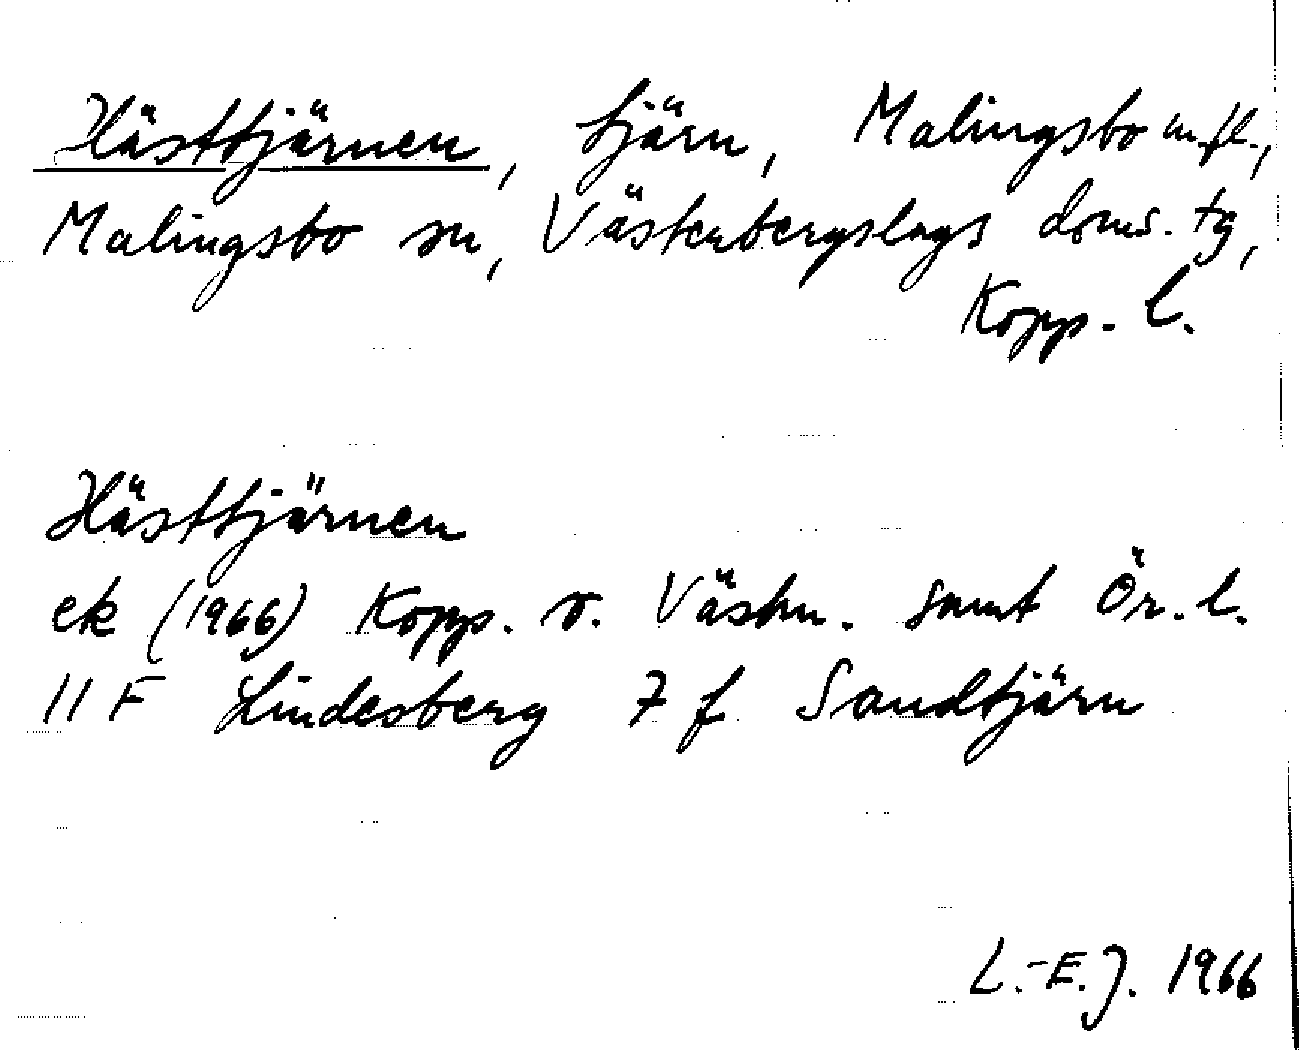 Hästtjärnen, tjärn, Malingsbo m.fl.,
Malingsbo sn, Västerbergslags doms. tg,
Kopp. l.
Hästtjärnen
ek (1966) Kopp. o. Västm. samt Ör. l.
11 F Lindesberg 7 f Sandtjärn
L.-E.J. 1966